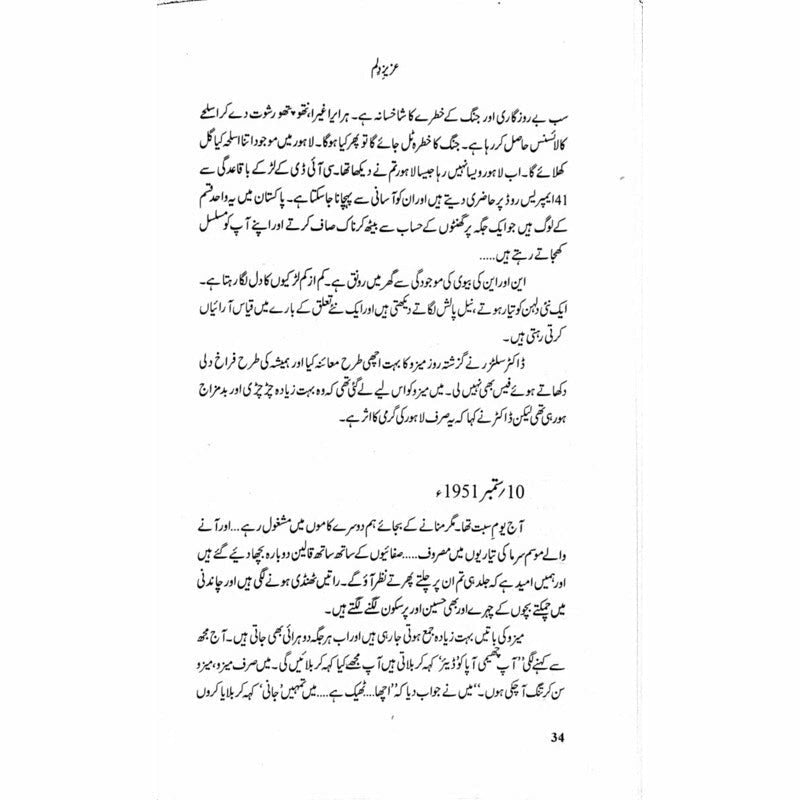 عزیزِ دلم
سب بے روزگاری اور جنگ کے خطرے کا شاخسانہ ہے۔ ہر ایرا غیرا، نتھو پتھو رشوت دے کر اسلحے
کا لائسنس حاصل کر رہا ہے۔ جنگ کا خطرہ ٹل جائے گا تو پھر کیا ہوگا۔ لاہور میں موجود اتنا اسلحہ کیا گل
کھلائے گا۔ اب لاہور ویسا نہیں رہا جیسا لاہور تم نے دیکھا تھا۔ سی آئی ڈی کے لڑکے باقاعدگی سے
41 ایمپریس روڈ پر حاضری دیتے ہیں اور ان کو آسانی سے پہچانا جا سکتا ہے۔ پاکستان میں یہ واحد قسم
کے لوگ ہیں جو ایک جگہ پر گھنٹوں کے حساب سے بیٹھ کر ناک صاف کرتے اور اپنے آپ کو مسلسل
کھجاتے رہتے ہیں.....
این اور این کی بیوی کی موجودگی سے گھر میں رونق ہے۔ کم از کم لڑکیوں کا دل لگا رہتا ہے۔
ایک نئی دلہن کو تیار ہوتے، نیل پالش لگاتے دیکھتی ہیں اور ایک نئے تعلق کے بارے میں قیاس آرائیاں
کرتی رہتی ہیں۔
ڈاکٹر سلٹزر نے گزشتہ روز میزو کا بہت اچھی طرح معائنہ کیا اور ہمیشہ کی طرح فراخ دلی
دکھاتے ہوئے فیس بھی نہیں لی۔ میں میزو کو اس لیے لے گئی تھی کہ وہ بہت زیادہ چڑچڑی اور بدمزاج
ہو رہی تھی لیکن ڈاکٹر نے کہا کہ یہ صرف لاہور کی گرمی کا اثر ہے۔
10/ ستمبر 1951ء
آج یومِ سبت تھا۔ مگر منانے کے بجائے ہم دوسرے کاموں میں مشغول رہے...اور آنے
والے موسمِ سرما کی تیاریوں میں مصروف.....صفائیوں کے ساتھ ساتھ قالین دوبارہ بچھا دیئے گئے ہیں
اور ہمیں امید ہے کہ جلد ہی تم ان پر چلتے پھرتے نظر آؤ گے۔ راتیں ٹھنڈی ہونے لگی ہیں اور چاندنی
میں چمکتے بچوں کے چہرے اور بھی حسین اور پرسکون لگنے لگتے ہیں۔
میزو کی باتیں بہت زیادہ جمع ہوتی جا رہی ہیں اور اب ہر جگہ دوہرائی بھی جاتی ہیں۔ آج مجھ
سے کہنے لگی ”آپ چھیمی آپا کو ’ڈیئر‘ کہہ کر بلاتی ہیں آپ مجھے کیا کہہ کر بلائیں گی۔ میں صرف میزو، میزو
سن کر تنگ آ چکی ہوں۔“ میں نے جواب دیا کہ ”اچھا....ٹھیک ہے....میں تمہیں ’جانی‘ کہہ کر بلایا کروں
34